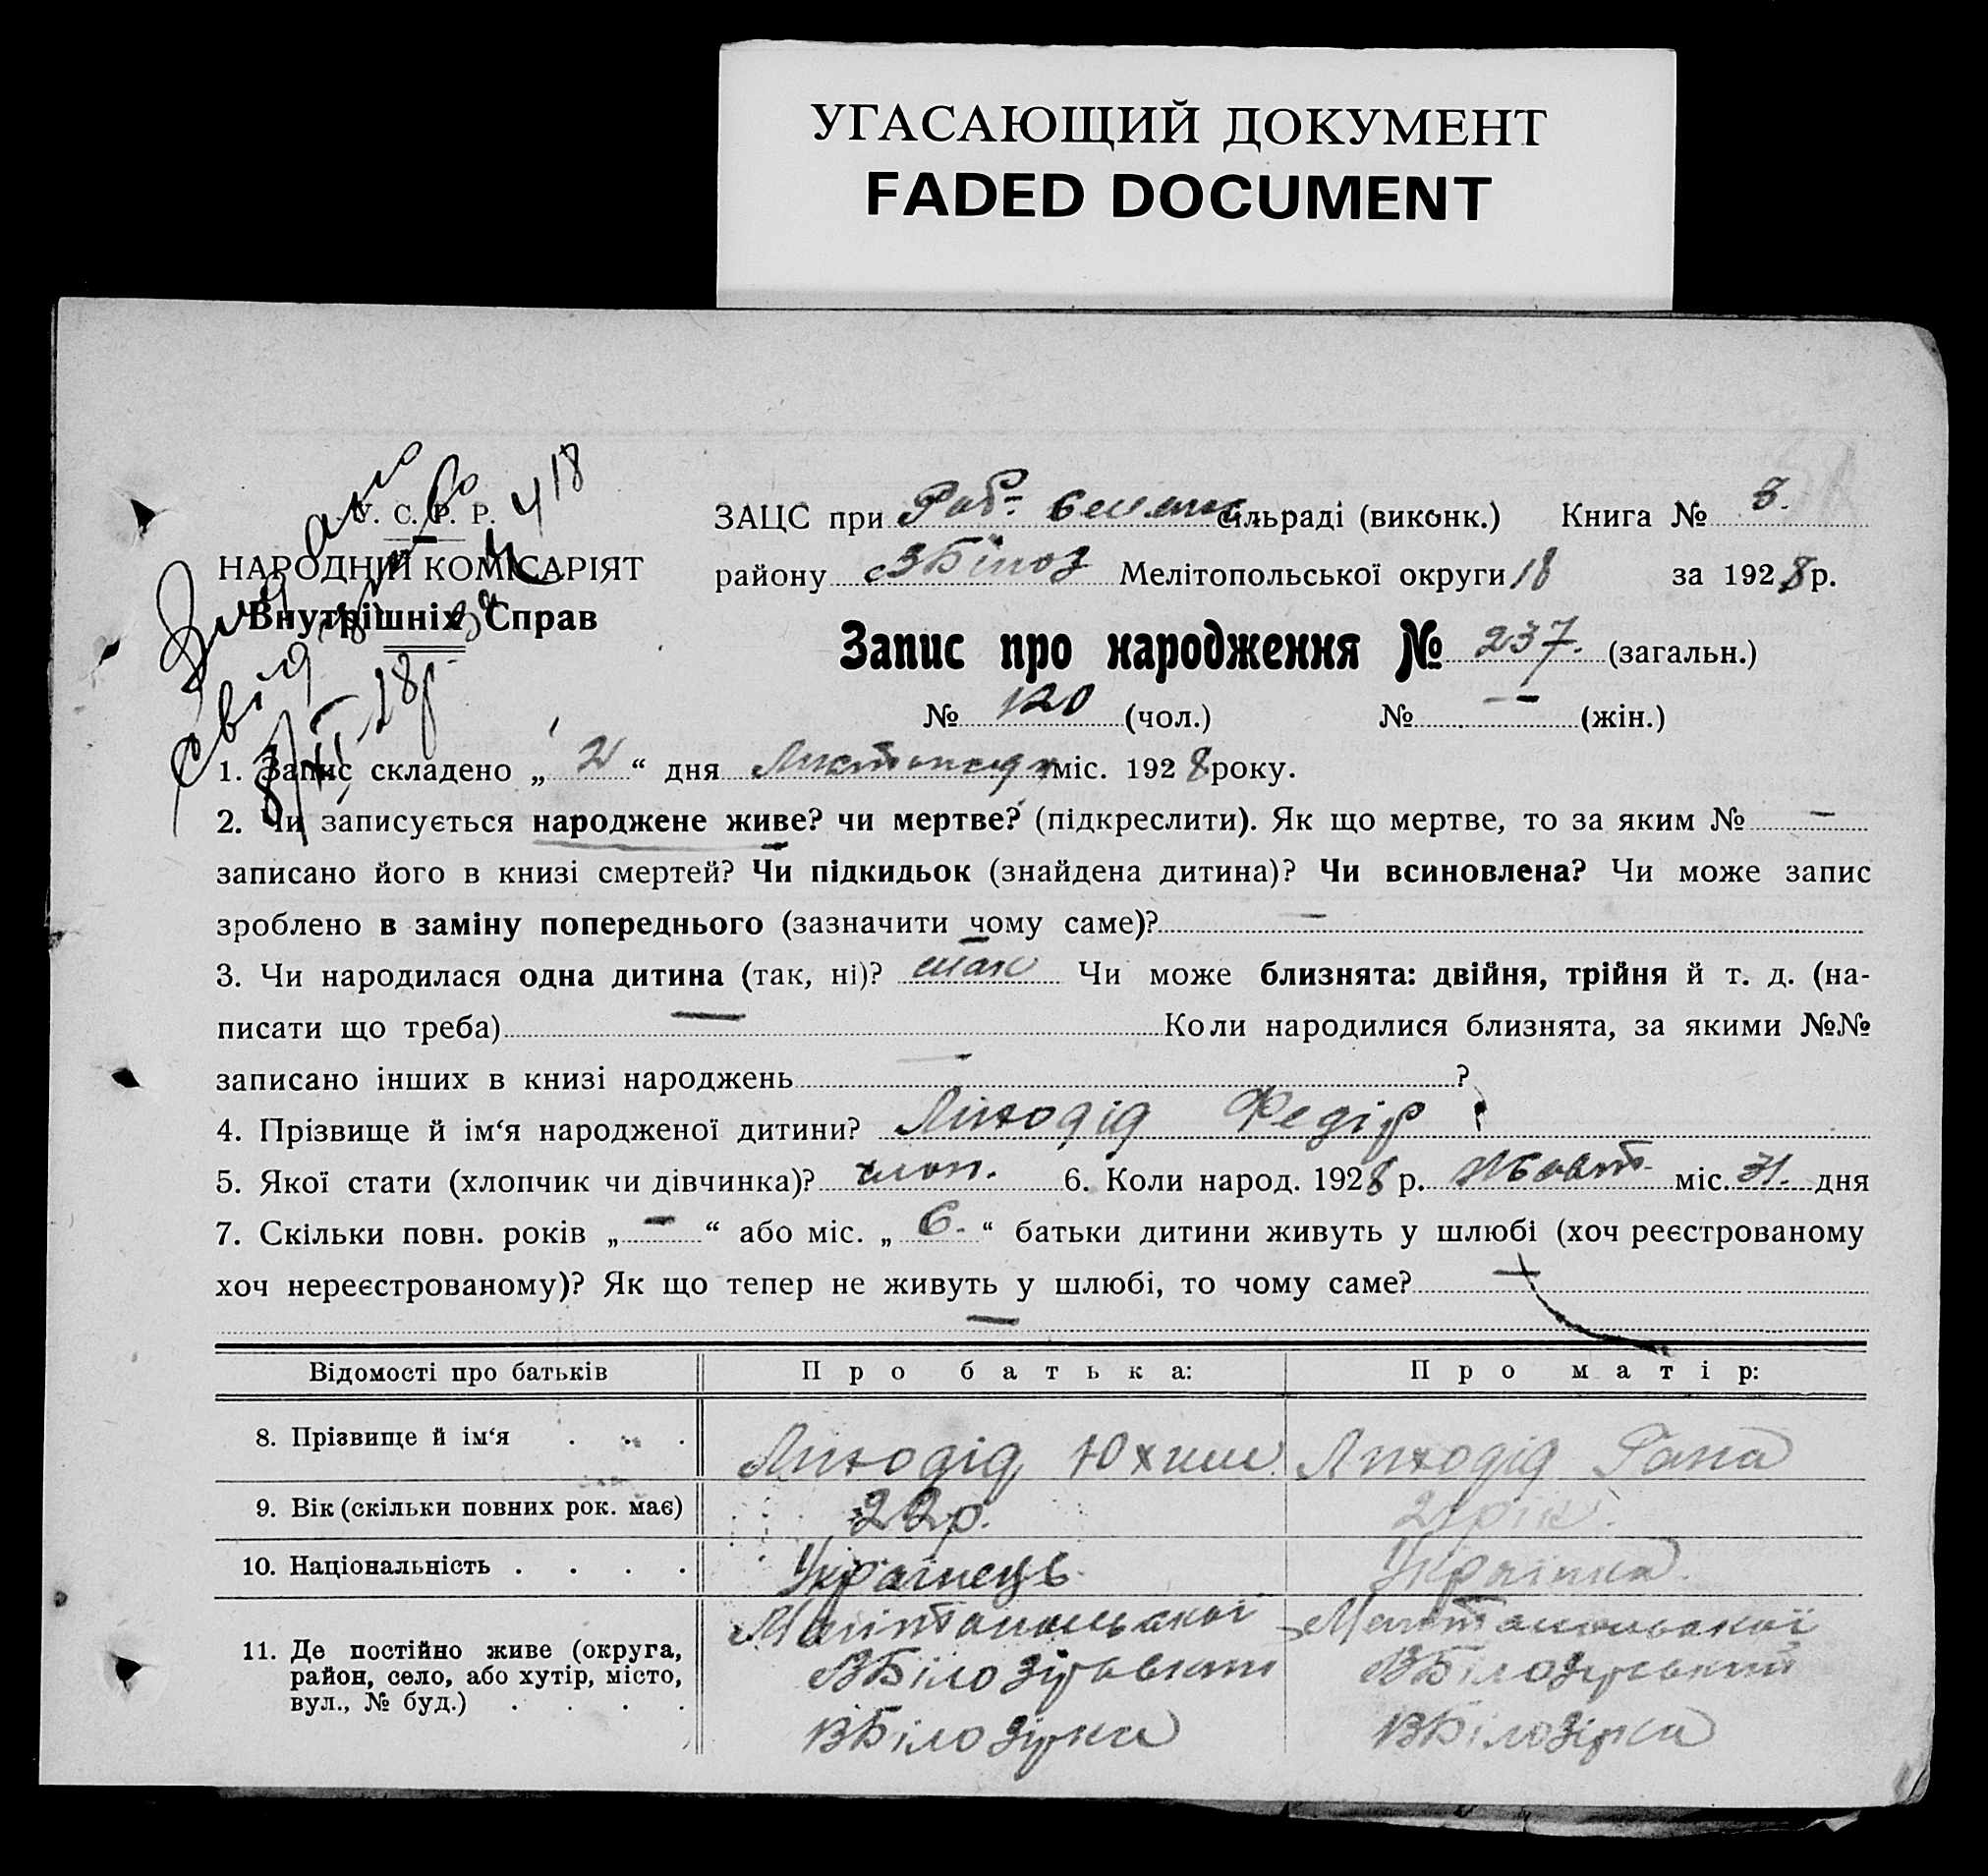 УГАСАЮЩИЙ ДОКУМЕНТ
FADED DOCUMENT
У. С. Р. Р.
НАРОДНІЙ КОМІСАРІЯТ
Внутрішніх Справ
ЗАЦС при Раб. сільраді (виконк.) Книга №
району Мелітопольської округи 18 за 1928 р.
Запис про народження № 237. (загальн.)
№ 120 (чол.) № — (жін.)
1. Запис складено „ 2 “ дня Листопада міс. 1928 року.
2. Чи записується народжене живе? чи мертве? (підкреслити). Як що мертве, то за яким № —
записано його в книзі смертей? Чи підкидьок (знайдена дитина)? Чи всиновлена? Чи може запис
зроблено в заміну попереднього (зазначити чому саме)? —
3. Чи народилася одна дитина (так, ні)? так Чи може близнята: двійня, трійня й т. д. (на-
писати що треба) — Коли народилися близнята, за якими №№
записано інших в книзі народжень — ?
4. Прізвище й ім‘я народженої дитини? Лиходід Федір
5. Якої стати (хлопчик чи дівчинка)? хлоп. 6. Коли народ. 1928 р. Жовт. міс. 31. дня
7. Скільки повн. років „ — “ або міс. „ 6. “ батьки дитини живуть у шлюбі (хоч реєстрованому
хоч нереєстрованому)? Як що тепер не живуть у шлюбі, то чому саме? —
—
Відомості про батьків Про батька: Про матір:
8. Прізвище й ім‘я . . . Лиходід Юхим. Лиходід Гана
9. Вік (скільки повних рок. має) 22 р. 21 рік.
10. Національність . . . . Українець. Українка.
11. Де постійно живе (округа, Мелітопольської Мелітопольської
район, село, або хутір, місто, ВБілозірський ВБілозірський
вул., № буд.) . . . . ВБілозірка ВБілозірка